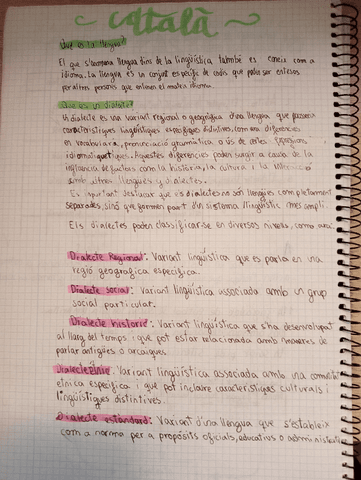 català
Què es la llengua?
El que s'anomena llengua dins de la lingüística també es coneix com a
idioma. La llengua es un conjunt específic de codis que poden ser entesos
per altres persones que entenen el mateix idioma.
Què es un dialecte?
Un dialecte es una variant regional o geogràfica d'una llengua que presenta
característiques lingüístiques específiques distintives, com ara diferencies
en vocabulari, pronunciació gramatica o ús de certes expressions
idiomatiques. Aquestes diferencies poden surgir a causa de la
influencia de factors com la història, la cultura i la interacció
amb altres llengues y dialectes.
Es important destacar que els dialectes no son llengues completament
separades, sinó que formen part d'un sistema lingüístic mes ampli.
Els dialectes poden classificarse en diversos nivells, com ara:
Dialecte Regional: Variant lingüística que es parla en una
regió geografica especifica.
Dialecte social: Variant lingüística associada amb un grup
social particular.
Dialecte historic: Variant lingüística que s'ha desenvolupat
al llarg del temps i que pot estar relacionada amb maneres de
parlar antigües o arcaiques.
Dialecte ètnic: Variant lingüística associada amb una comunitat
etnica especifica i que pot incloure caracteristiques culturals i
lingüístiques distintives.
Dialecte estàndard: Variant d'una llengua que s'estableix
com a norma per a propòsits oficials, educatius o administratius